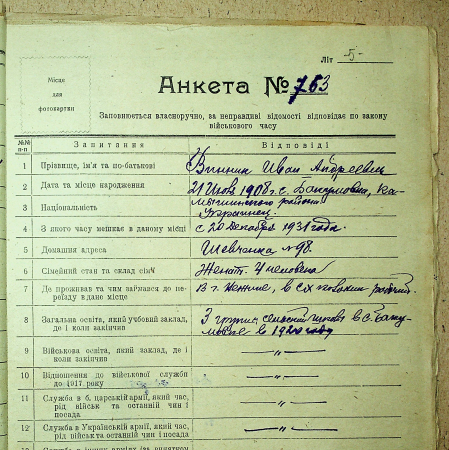 Літ -5-
Місце
для
фотокартки
Анкета № 753
Заповнюється власноручно, за неправдиві відомості відповідає по закону
військового часу
№№
п-п
Запитання
Відповіді
1 Прізвище, ім'я та по-батькові
Винник Иван Андреевич
2 Дата та місце народження
21 Июня 1908 г. с.
района
3 Національність
Украинец.
4 З якого часу мешкає в даному місці
с 20 Декабря 1931 года.
5 Домашня адреса
Шевченка № 98.
6 Сімейний стан та склад сім'ї
Женат. 4 человека
7 Де проживав та чим займався до пе-
реїзду в дане місце
В г. в с/х
8 Загальна освіта, який учбовий заклад,
де і коли закінчив
3 группы сельской школы в с.
в 1920 году
9 Військова освіта, який заклад, де і
коли закінчив
— " —
10 Відношення до військової служби
до 1917 року
— " —
11 Служба в б. царській армії, який час,
рід військ та останній чин і
посада
— " —
12 Служба в Українській армії, який час,
рід військ та останній чин і посада
— " —